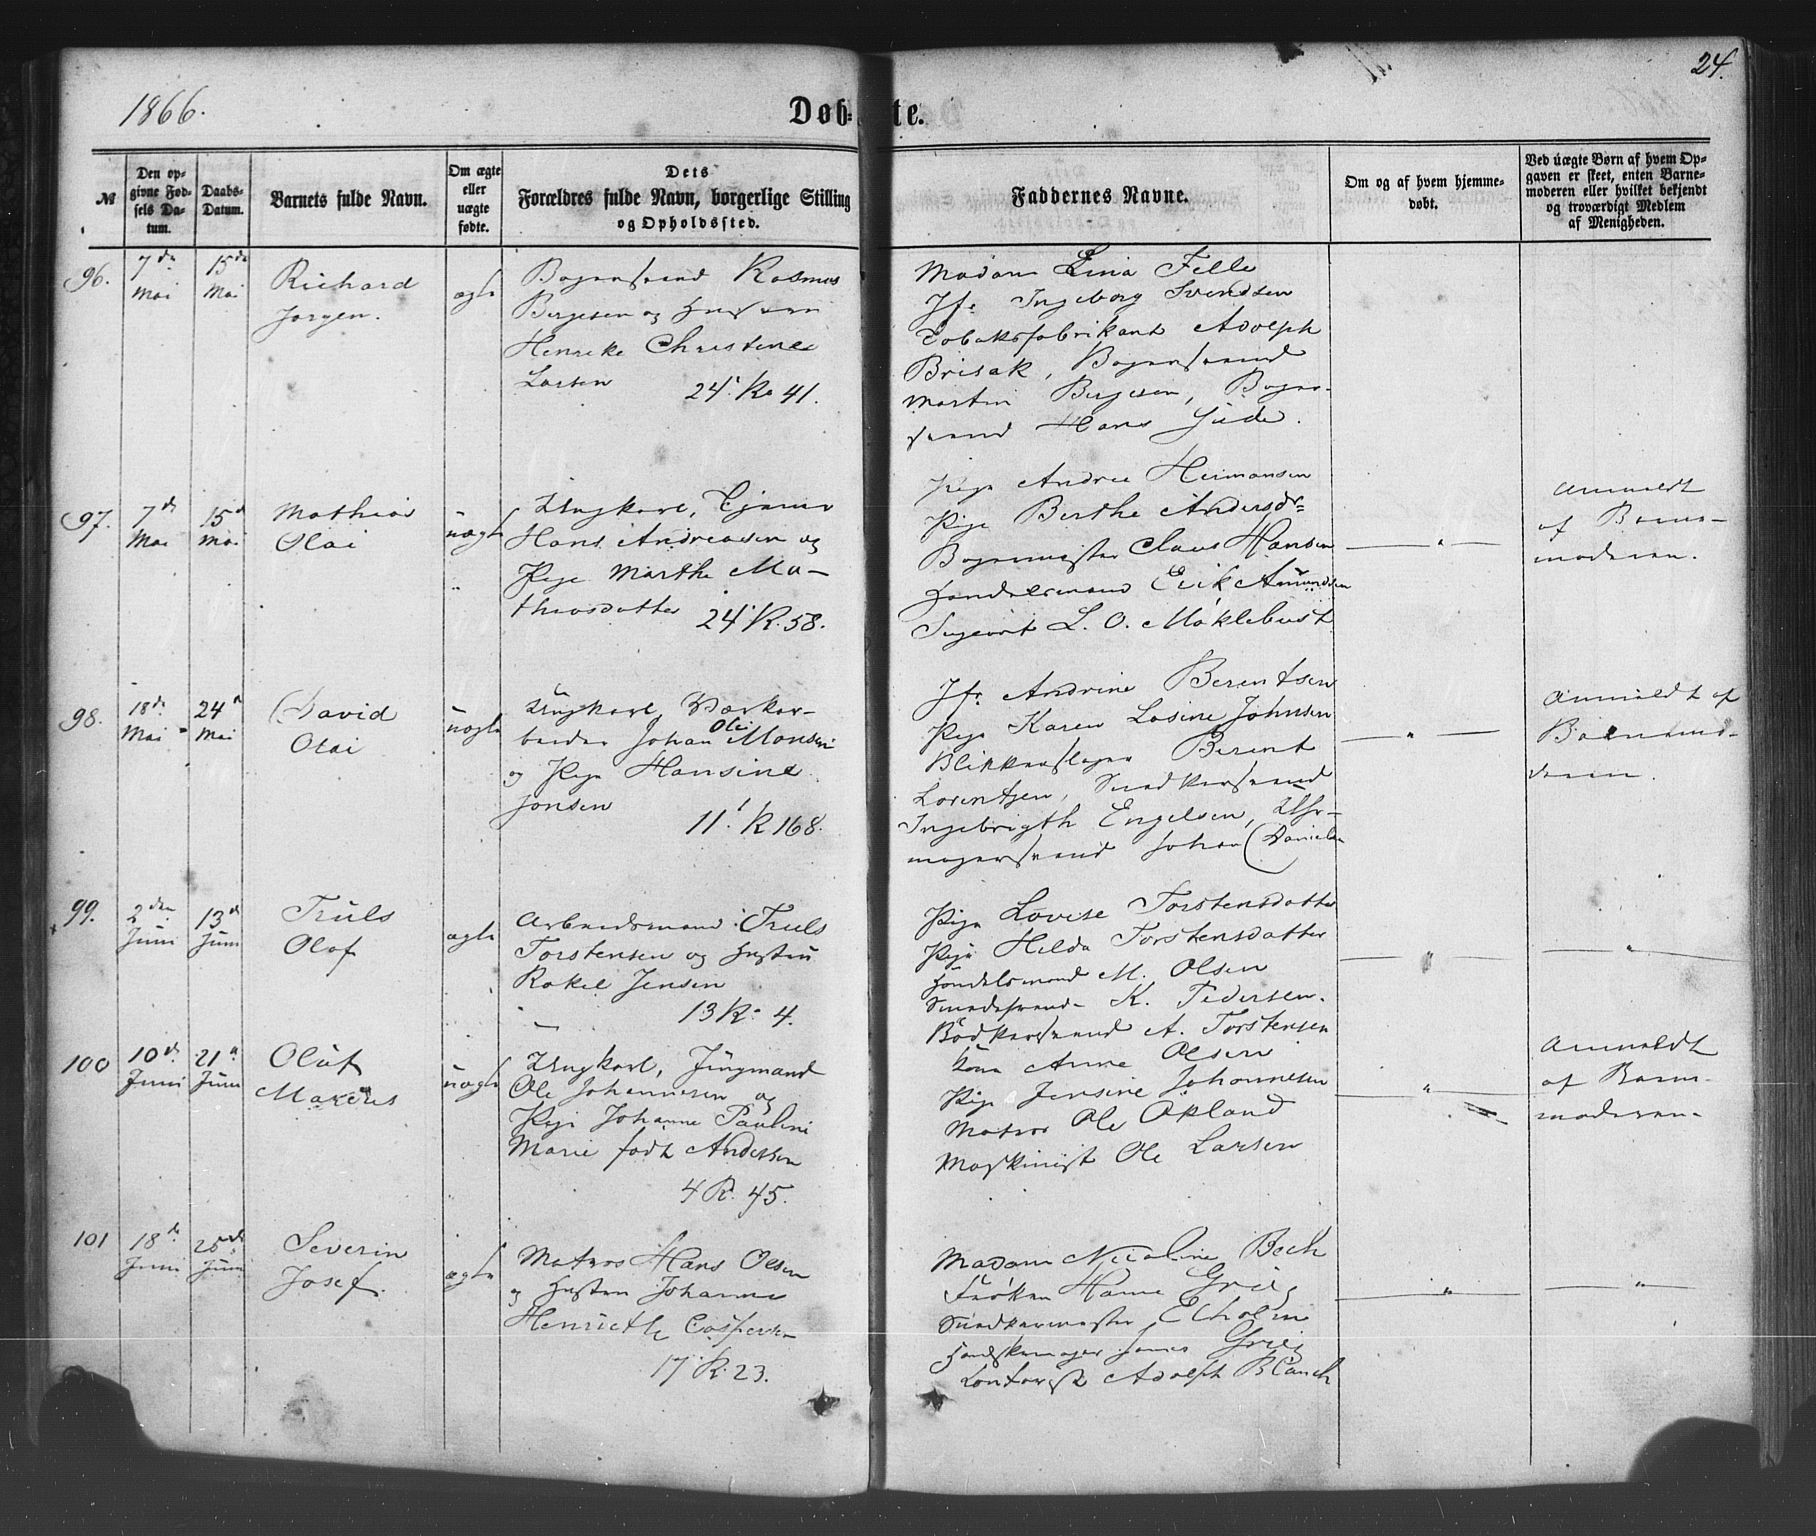 1866.
Døb-
te.
24.
№
Den op-
givne Fød-
sels Da-
tum.
Daabs-
Datum.
Barnets fulde Navn.
Om ægte
eller
uægte
fødte.
Dets
Forældres fulde Navn, borgerlige Stilling
og Opholdssted.
Faddernes Navne.
Om og af hvem hjemme-
døbt.
Ved uægte Børn af hvem Op-
gaven er skeet, enten Barne-
moderen eller hvilket bekjendt
og troværdigt Medlem
af Menigheden.
96.
7de
Mai
15de
Mai
Richard
Jørgen.
ægte
Rasmus
Bergesen og Hustru
Henrike Christine
Larsen 24' R. 41.
Madam Lina Felle
Jfr. Ingeborg Svendsen
Tobaksfabrikant Adolph
Brisak,
Martin Bergesen,
Hans Gude.
97.
7de
Mai
15de
Mai
Mathias
Olai
uægte
Ungkarl, Tjener
Hans Andreasen og
Pige Marthe Ma-
thiasdatter 24' R. 58.
Pige Andrea Hermansen
Pige Berthe Andersdr
Bogermester Claus Hansen
Handelsmand Erik Amundsen
L. O. Møklebust
"
Anmeldt
af Barne-
moderen.
98.
18de
Mai
24de
Mai
David
Olai
uægte
Ungkarl, Værkar-
beider Johan Oli Monsen
og Pige Hansine
Jonsen
11' R 168.
Jfr. Andrine Berentsen
Pige Karen Losine Johnsen
Blikkenslager Berent
Lorentzen, Snedkersvend
Ingebrigth Engelsen, Uhr-
magersvend Johan Danielsen
"
Anmeldt af
Barnemo-
deren.
99.
2den
Juni
13de
Juni
Truls
Olaf
ægte
Arbeidsmand Truls
Torstensen og Hustru
Rakel Jensen
13 R. 4.
Pige Lovise Torstensdatter
Pige Hilda Torstensdatter
Handelsmand M. Olsen
Smedesvend K. Pedersen.
Bødkersvend A. Torstensen
"
"
100
10de
Juni
21de
Juni
Oluf
Marcus
uægte
Ungkarl, Jungmand
Ole Johannesen og
Pige Johanne Pauline
Marie født Andersen
4 R. 45.
Kone Anne Olsen
Pige Jensine Johannesen
Matros Ole Opland
Maskinist Ole Larsen
"
Anmeldt
af Barne-
moderen.
101
18de
Juni
25de
Juni
Severin
Josef.
ægte
Matros Hans Olsen
og Hustru Johanne
Henriette Caspersen
17 R. 23.
Madam Nicoline Bech
Frøken Hanne Grieg
Snedkermester Eckholm
Handskemager James Grieg
Contorist Adolph Blauch
"
"